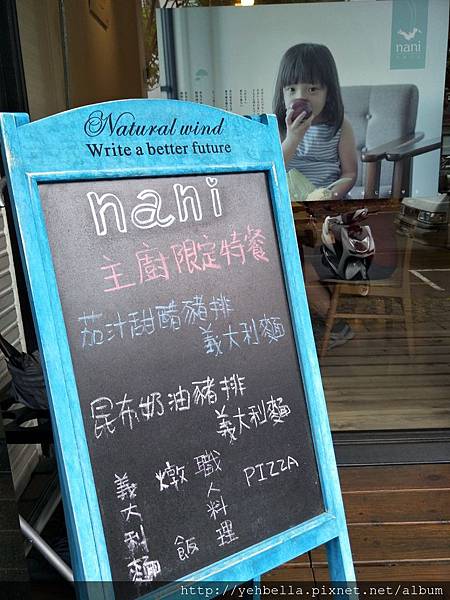 nani
Natural wind
Write a better future
nani
主廚限定特餐
茄汁甜醋豬排
義大利麵
昆布奶油豬排
義大利麵
義大利麵
燉飯
職人料理
PIZZA
http://yehbella.pixnet.net/album